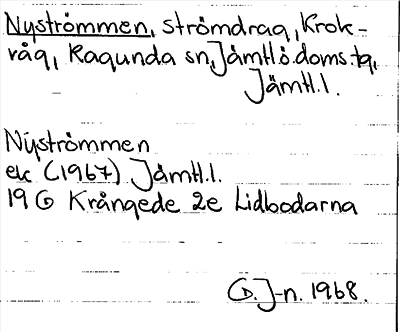 Nyströmmen, strömdrag, Krok-
våg, Ragunda sn, Jämtl ö. doms. tg,
Jämtl. l.
Nyströmmen
ek (1967) Jämtl. l.
19 G Krångede 2e Lidbodarna
G. J-n. 1968.